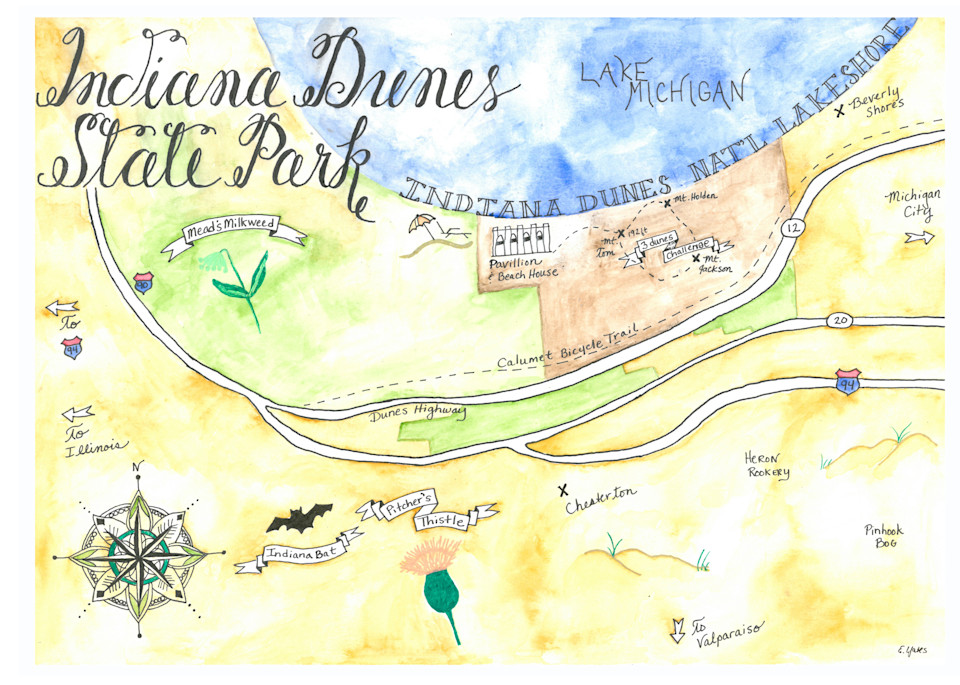 Indiana Dunes
State Park
LAKE
MICHIGAN
INDIANA DUNES NAT'L LAKESHORE
X Beverly
Shores
Michigan
City
Mead's Milkweed
Pavillion
+ Beach House
Mt.
Tom
X 192ft
X Mt. Holden
3 dunes
Challenge
X Mt.
Jackson
12
90
To
94
20
Calumet Bicycle Trail
Dunes Highway
94
To
Illinois
N
Heron
Rookery
X
Chesterton
Pinhook
Bog
Indiana Bat
Pitcher's
Thistle
To
Valparaiso
E. Yates